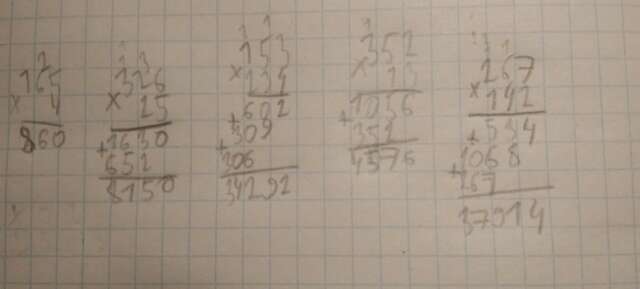 2
165
× 4
860
1 3
326
× 25
1630
+ 652
8150
1 1
153
×
+ 602
+ 309
306
34292
1
352
× 13
1056
+ 352
4576
267
× 142
+ 534
1068
+ 267
37914